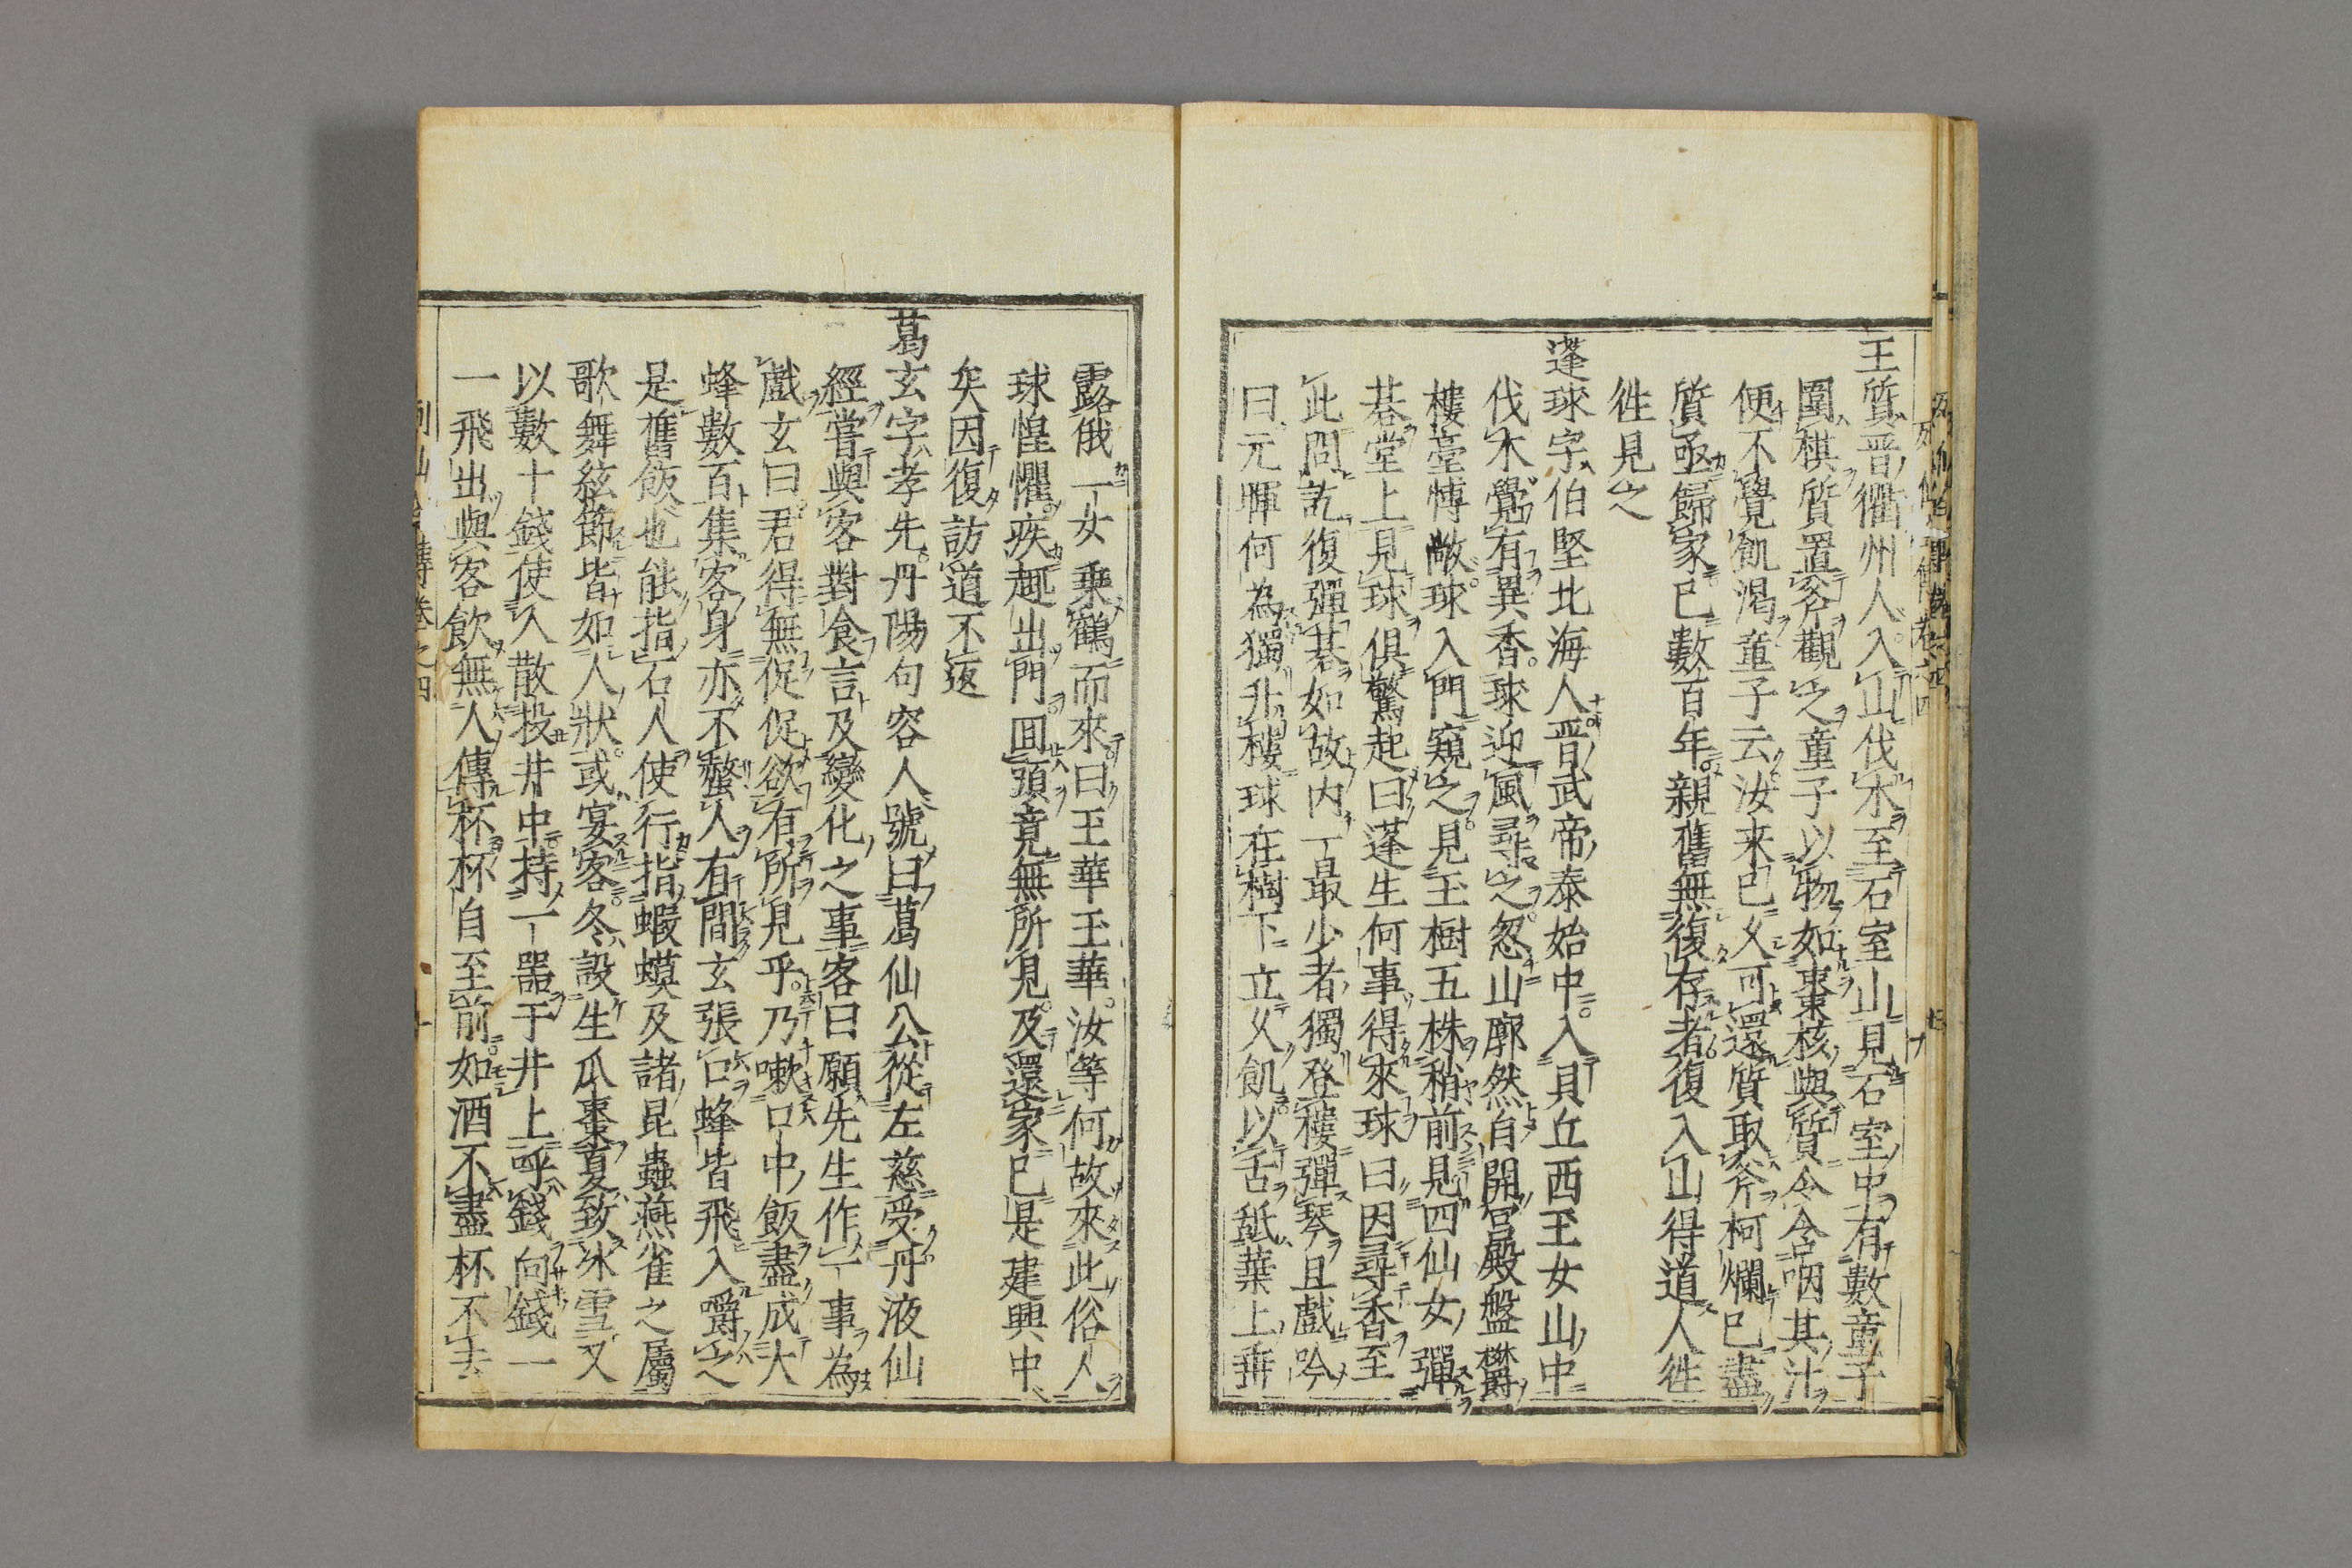 王質晋衢州人入山伐木至石室山見石室中有數童子
圍棋質置斧觀之童子以物如棗核與質令含咽其汁
便不覺飢渴童子云汝来已久可還質取斧柯爛已盡
質亟歸家已數百年親舊無復存者復入山得道人徃
徃見之
蓬球字伯堅北海人晋武帝泰始中入貝丘西玉女山中
伐木覺有異香球迎風尋之忽山廓然自開宮殿盤欝
樓臺博敞球入門窺之見玉樹五株稍前見四仙女彈
碁堂上見球俱驚起曰蓬生何事得來球曰因尋香至
此問訖復彈碁如故内一最少者獨登樓彈琴且戲吟
曰元暉何為獨升樓球在樹下立久飢以舌舐葉上垂
露俄一女乗鶴而來曰玉華玉華汝等何故來此俗人
球惶懼疾趍出門囬頭竟無所見及還家已是建興中
矣因復訪道不返
葛玄字孝先丹陽句容人號曰葛仙公從左慈受丹液仙
經甞與客對食言及變化之事客曰願先生作一事為
戲玄曰君得無促促欲有所見乎乃嗽口中飯盡成大
蜂數百集客身亦不螫人有間玄張口蜂皆飛入嚼之
是舊飯也能指石人使行指蝦蟆及諸昆蟲燕雀之屬
歌舞絃節皆如人狀或宴客冬設生瓜棗夏致冰雪又
以數十錢使人散投井中持一器于井上呼錢向錢一
一飛出與客飲無人傳杯杯自至前如酒不盡杯不去